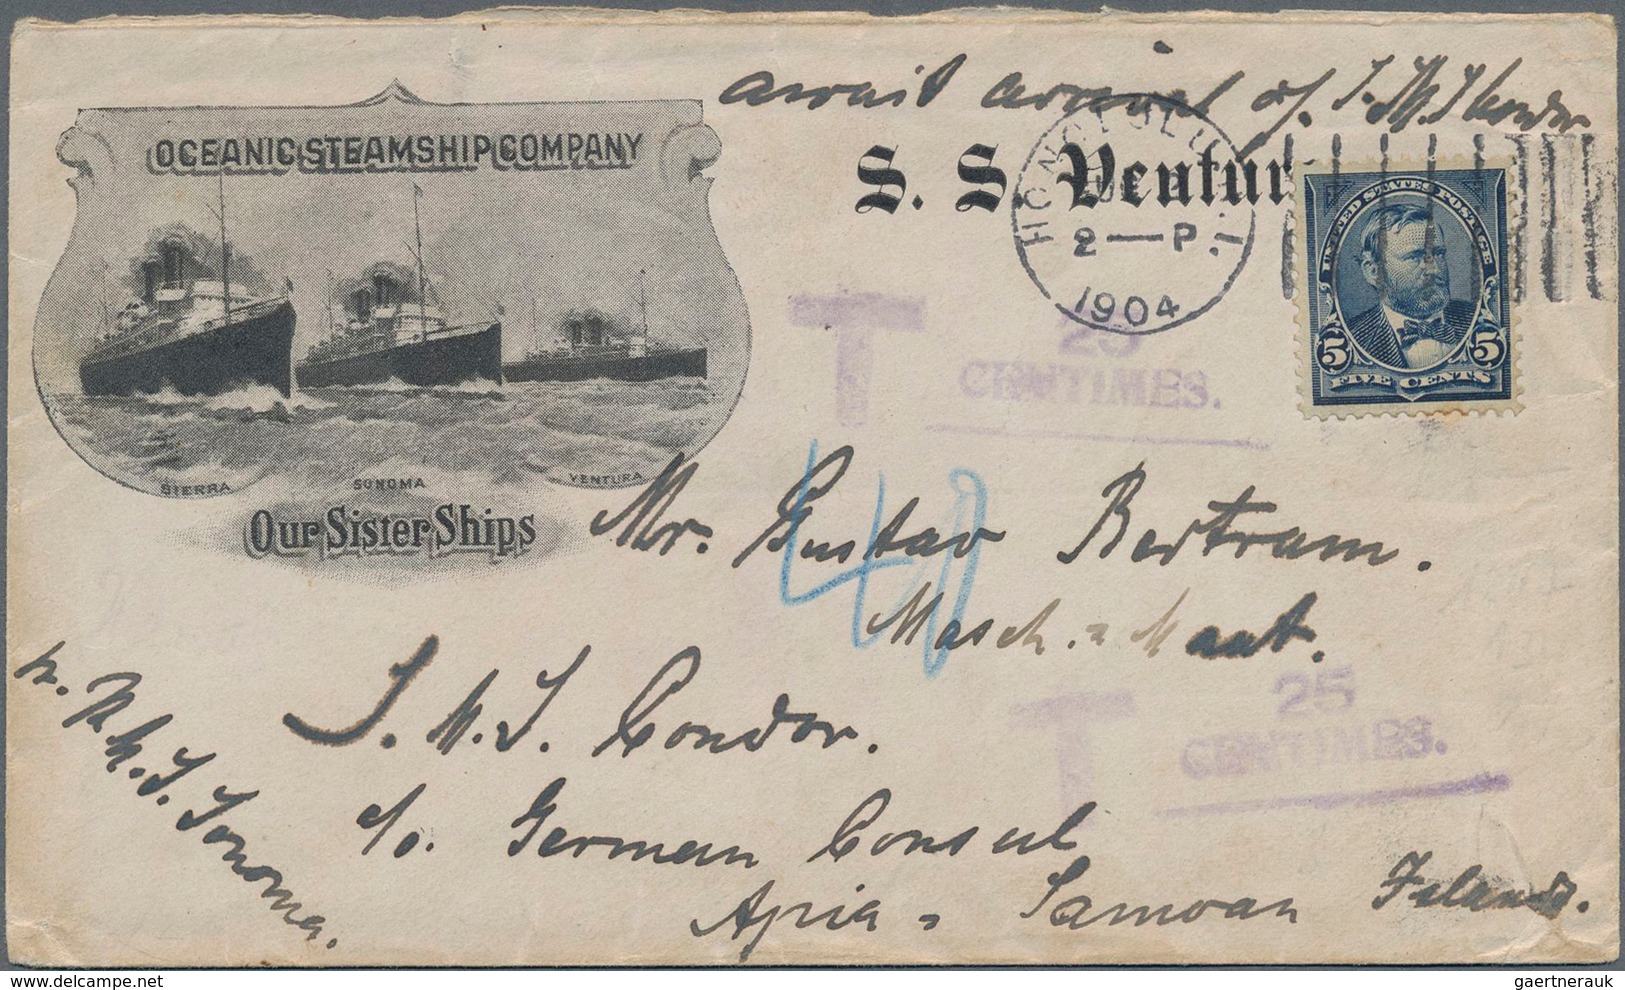 await arrival of S.M.S. Condor
OCEANIC STEAMSHIP COMPANY
S. S. Ventur
HONOLULU
2 — P.
1904
UNITED STATES POSTAGE
5 5
FIVE CENTS
T 25
CENTIMES.
SIERRA SONOMA VENTURA
Our Sister Ships
40
Mr. Gustav Bertram.
Masch. = Maat.
S. M. S. Condor.
T 25
CENTIMES.
p. R.M.S. Sonoma.
c/o. German Consul
Apia = Samoan Islands.
gaertnerauk